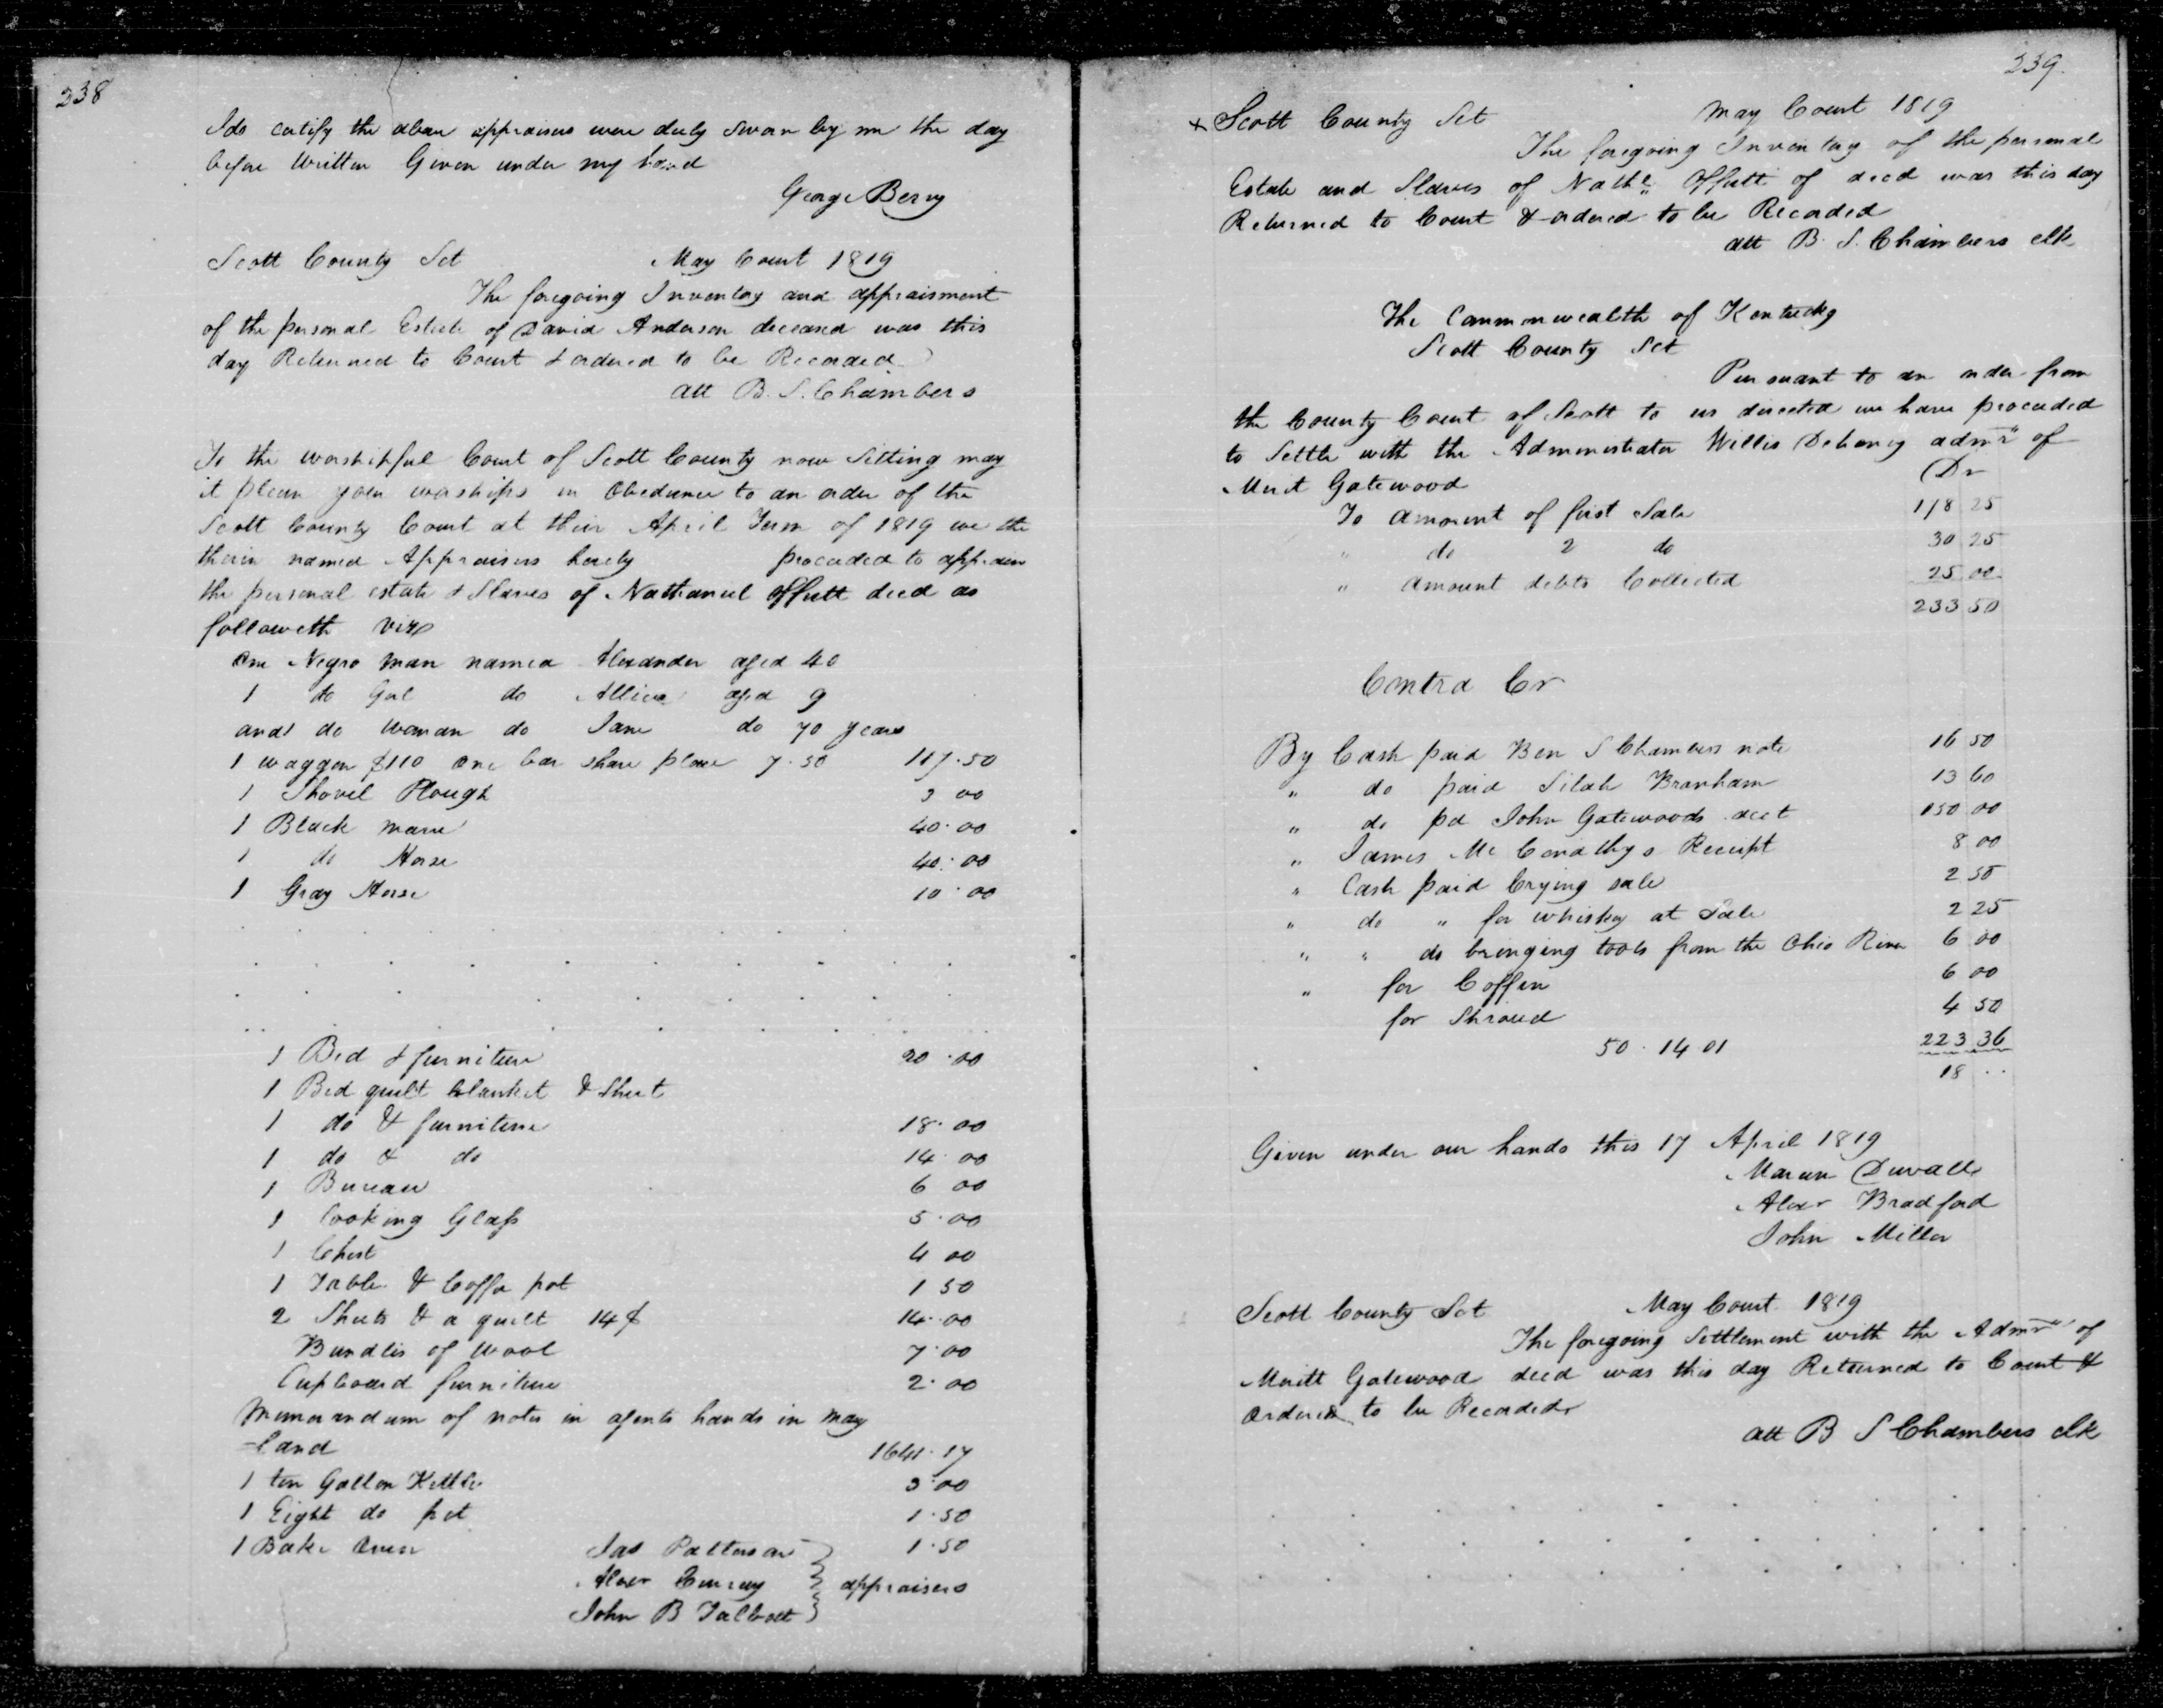 238
I do certify the above appraisers were duly sworn by me the day
before written Given under my hand
George Berry
Scott County Sct May Court 1819
The foregoing Inventory and appraisment
of the personal Estate of David Anderson deceased was this
day Returned to Court & ordered to be Recorded
att B. S. Chambers
To the worshipful Court of Scott County now Sitting may
it please your worships in Obedience to an order of the
Scott County Court at their April Term of 1819 we the
therein named Appraisers hereby proceeded to appraise
the personal estate & Slaves of Nathaniel Offutt decd as
followeth viz
One Negro man named Alexander aged 40
1 do Gal do Allice aged 9
and 1 do woman do Jane do 70 years
1 waggon $110 one bar share plow 7.50 117.50
1 Shovel Plough 3 00
1 Black mare 40.00
1 do Horse 40.00
1 Gray Horse 10.00
1 Bed & furniture 20.00
1 Bed quilt blanket & Sheet
1 do & furniture 18.00
1 do & do 14 00
1 Bureau 6 00
1 Looking Glass 5.00
1 Chest 4 00
1 Table & Coffe pot 1 50
2 Sheets & a quilt 14$ 14.00
Bundles of wool 7.00
Cupboard furniture 2.00
Memorandum of notes in agents hands in may
-land 1641.17
1 ten Gallon Kettle 3.00
1 Eight do pot 1.50
1 Bake Oven 1.50
Jas Patterson
Alexr Currey appraisers
John B Talbott
239.
x Scott County Sct May Court 1819
The foregoing Inventory of the personal
Estate and Slaves of Nathl. Offutt of decd was this day
Returned to Court & ordered to be Recorded
att B. S. Chambers clk
The Commonwealth of Kentucky
Scott County Sct
Pursuant to an order from
the County Court of Scott to us directed we have proceeded
to Settle with the Administrator Willis Dehoney admr of
Merit Gatewood Dr
To amount of first Sale 118 25
" do 2 do 30 25
" amount debts Collected 25 00
233 50
Contra Cr
By Cash paid Ben S Chambers note 16 50
" do paid Silah Branham 13 60
" do pd John Gatewoods acct 150 00
" James Mc Receipt 8 00
" Cash paid Crying sale 2 50
" do " for whiskey at Sale 2 25
" " do bringing tools from the Ohio River 6 00
" for Coffin 6 00
for Shroud 4 50
50.14 01 223 36
18 . .
Given under our hands this 17 April 1819
Maren Duvall
Alexr Bradford
John Miller
Scott County Sct May Court 1819
The foregoing Settlement with the Admr of
Meritt Gatewood decd was this day Returned to Court &
Ordered to be Recorded
att B S Chambers clk